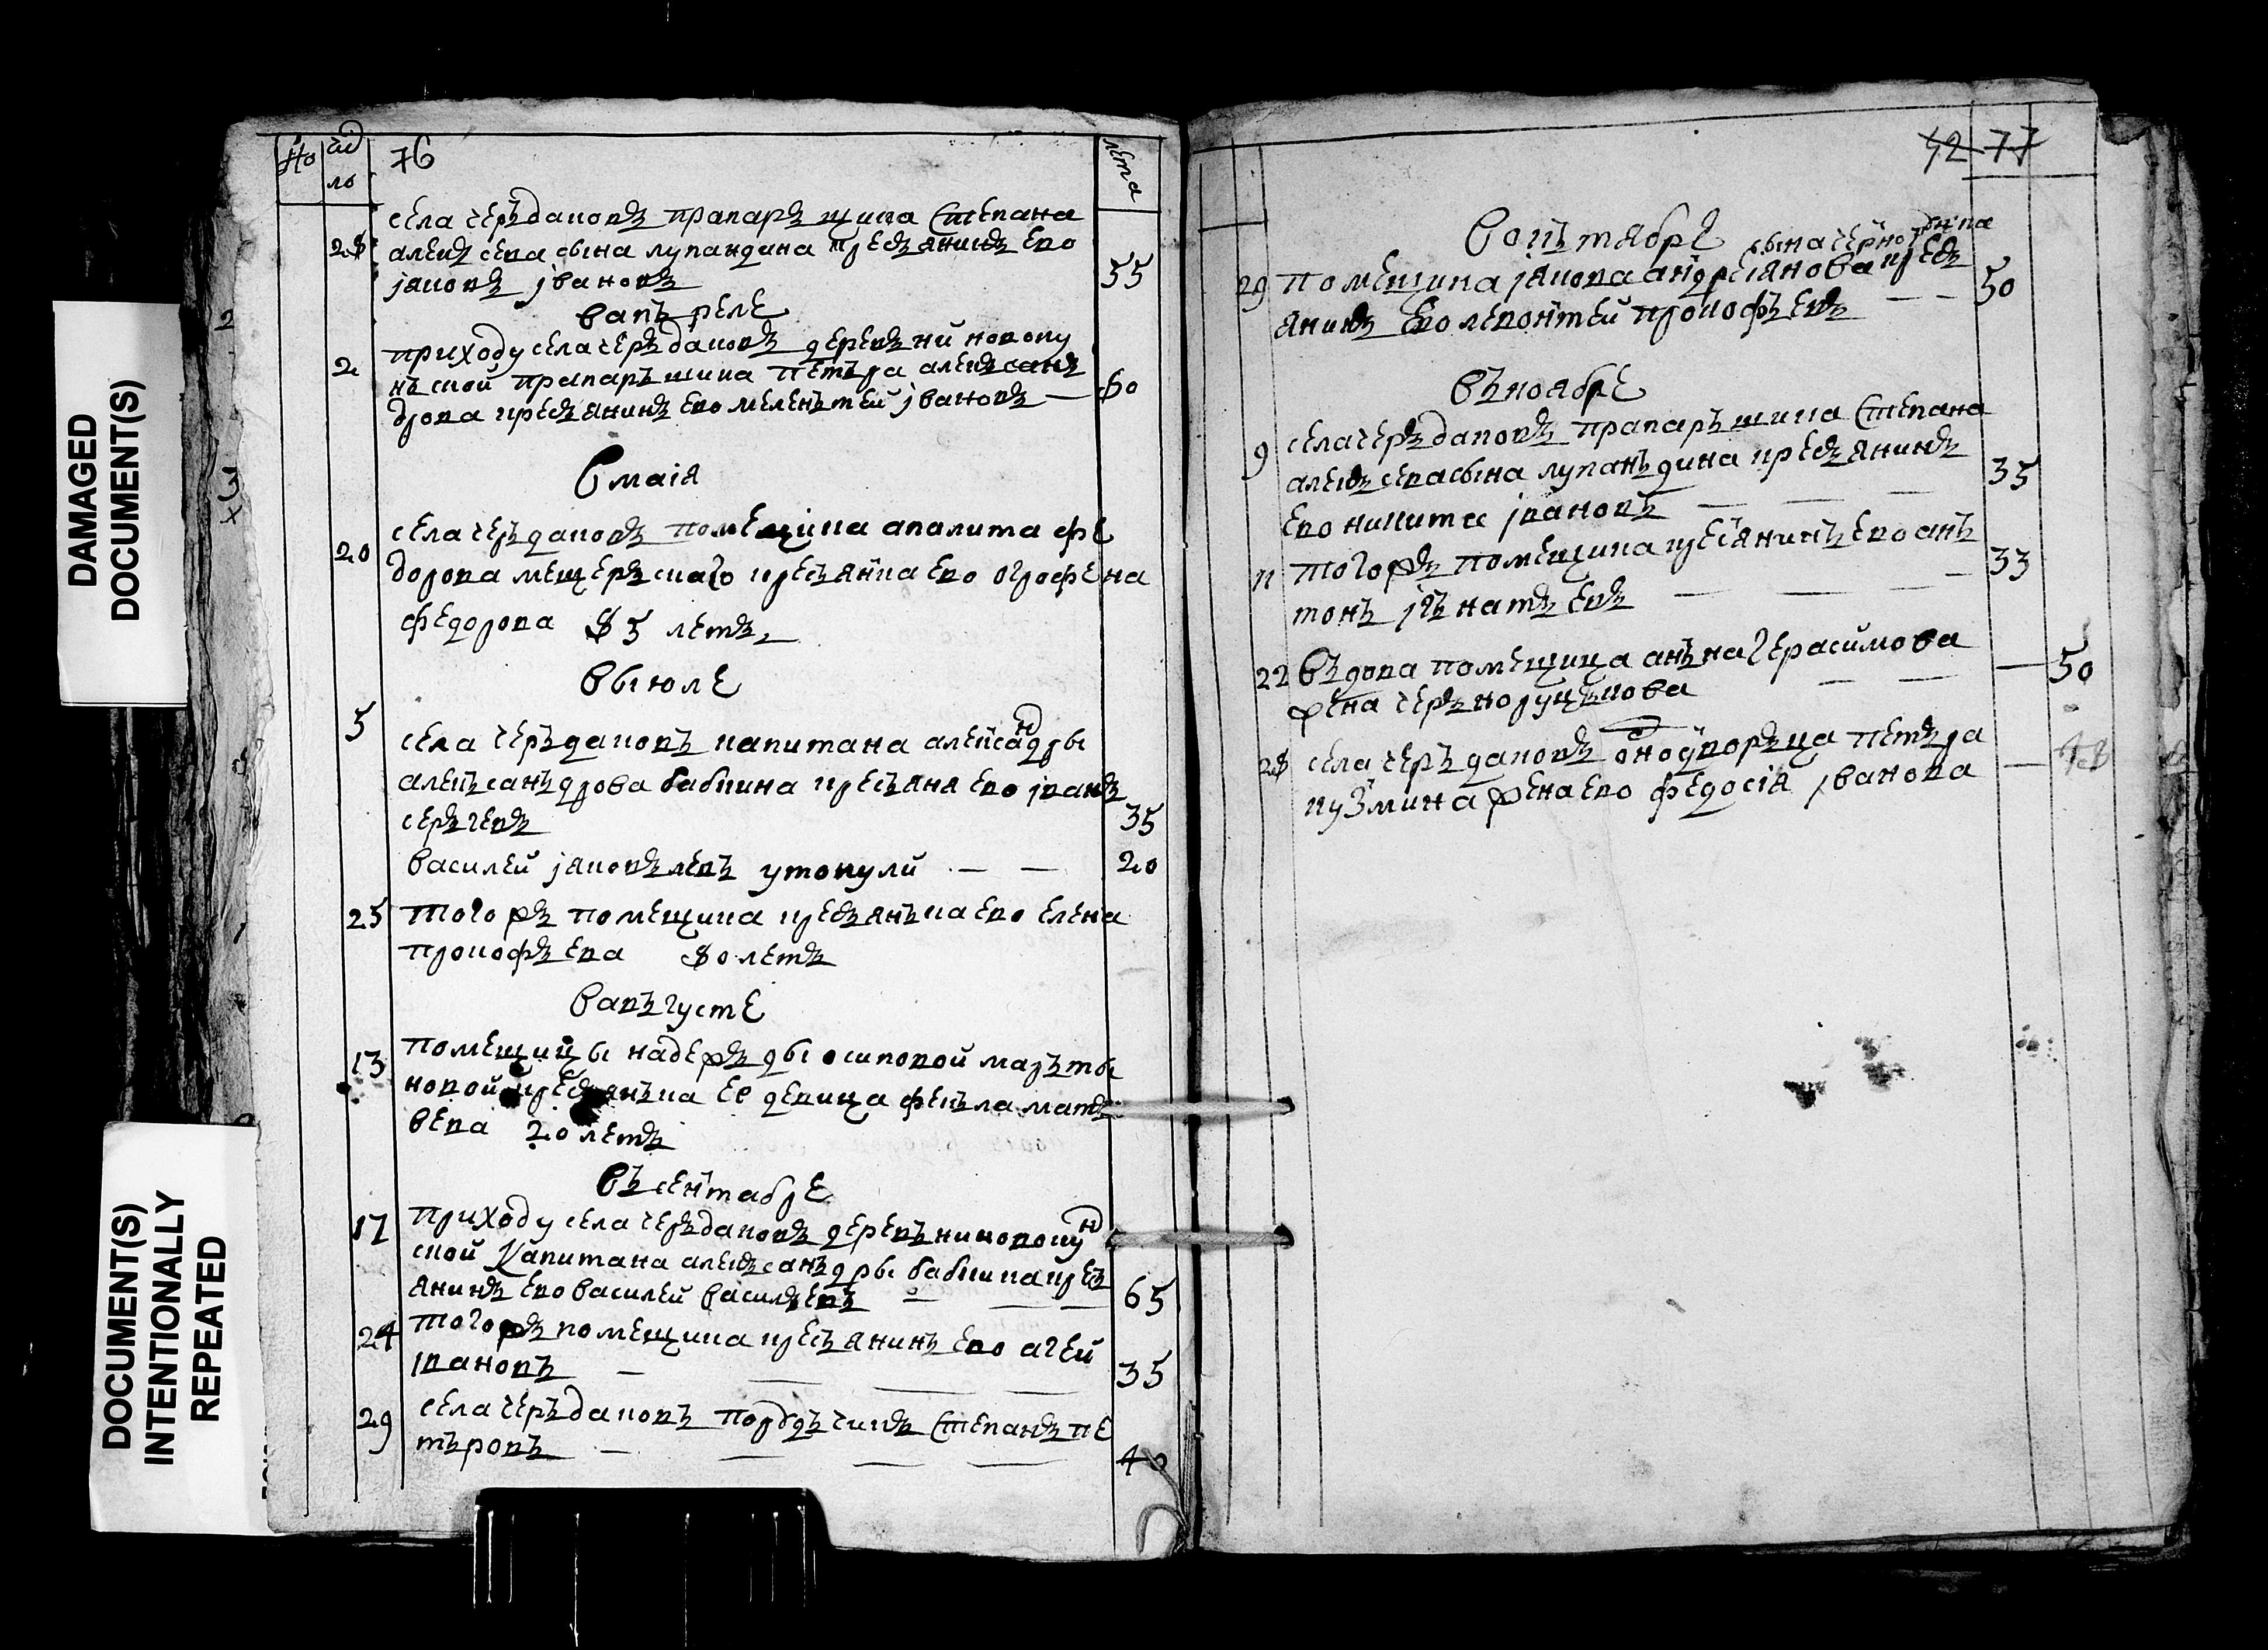 DAMAGED
DOCUMENT(S)
DOCUMENT(S)
INTENTIONALLY
REPEATED
76
лета
села черъдаковъ прапаръщика Степана
28 алеѯсева сына лупандина кресъянинъ ево
јаковъ јвановъ 55
вапъреле
приходу села черъдаковъ деревъни новоку
2 нъской прапаръшика петъра алеѯсанъ
дрова кресъянинъ ево меленьтей јвановъ — 60
Смаія
села черъдаковъ помещика аполита фе
20 дорова мещеръскаго кресъянка ево огрофена
федорова 85 летъ
выюле
5 села черъдаковъ капитана александры
алеѯсанъдрова бабкина кресъяня ево јванъ
серъгевъ 35
василей јаковълевъ утонули — — 20
25 тогожъ помещика кресъянъка ево елена
прокофъева 80 летъ
вавъгусте
13 помещицы надежъды осиповой маръты
новой кресъянъка ее девица фекъла матъ
вева 20 летъ
въсентабре
17 приходу села черъдаковъ деревънилковокун
ской капитана алеѯсанъдры бабкина крезъ
янинъ ево василей василъевъ — 65
24 тогожъ помещика кресъянинъ ево агей
јвановъ — 35
29 села черъдаковъ порудъчикъ Степанъ пе
търовъ — 40
42 77
Вокътябре
сына
29 помещика јакова андреянова крезъ
янинъ ево левонтей прокофъевъ — — 50
въноябре
9 села черъдаковъ прапаръшика Степана
алеѯсева сына лупанъдина кресъянинъ
ево никита јвановъ — 35
11 тогожъ помещика кресъянинъ ево анъ
тонъ јгънатъевъ — 33
22 въдова помещица анъна герасимова
жена черънолуцъкова — 50
28 села черъдаковъ однодворъца петъра
кузмина жена ево федосія јванова — 48